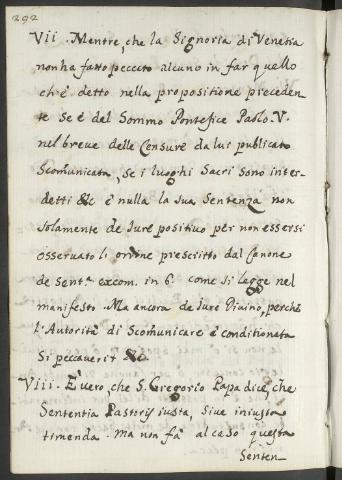 292
Vii. Mentre, che la Signoria di Venetia
non ha fatto peccato alcuno in far quello
ch'è detto nella propositione preceden-
te se è del Sommo Pontefice Paolo. V.
nel breue delle Censure da lui publicato
Scom̃unicata, se i luoghi Sacri sono inter-
detti &c è nulla la sua Sentenza non
solamente de Jure positiuo per non essersi
osseruato li ordine prescritto dal Canone
de Sent.ᵃ excom. in 6.º come si legge nel
manifesto. Ma ancora de Jure Diuino, perche
l'Autorità di Scom̃unicare è conditionata
Si peccauerit &c.
Viii. E uero, che S. Gregorio Papa dice, che
Sententia Pastorÿ iusta, siue iniusta
timenda. Ma non fà al caso questa
Senten